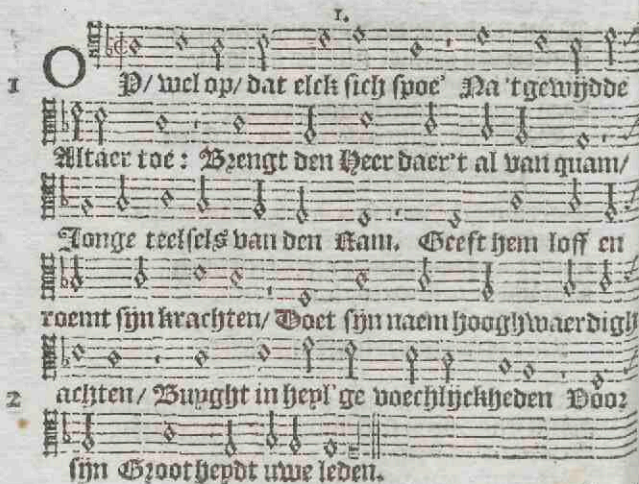 1.
1 OP/ wel op/ dat elck sich spoe' Na 'tgewijdde
Altaer toe: Brengt den Heer daer't al van quam/
Jonge teelsels van den Ram. Geeft hem loff en
roemt sijn krachten/ Doet sijn naem hooghwaerdigh
2 achten/ Buyght in heyl'ge voechlijckheden Voor
sijn Grootheydt uwe leden.